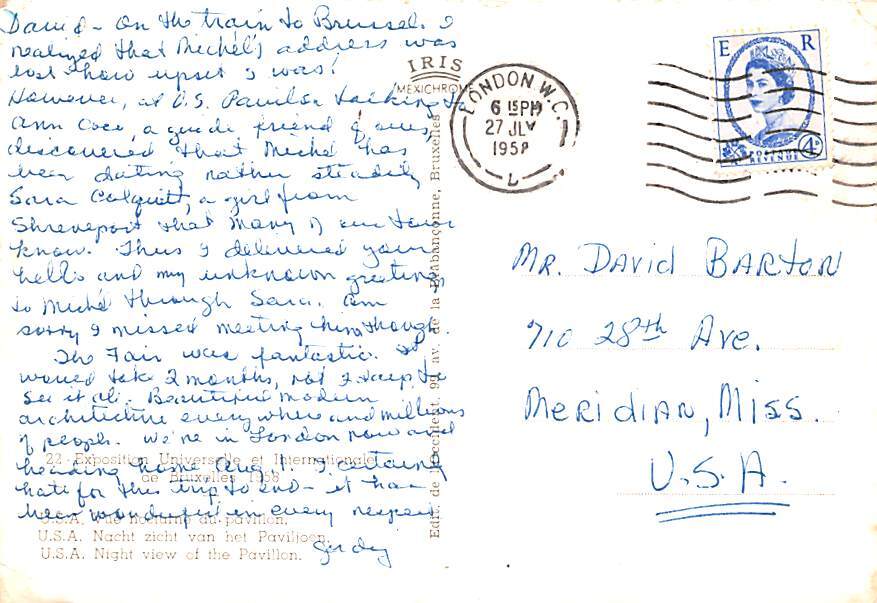 David - On the train to Brussels I
realized that Michel's address was
lost & how upset I was!
However, at U.S. Pavilion talking to
Ann Coco, a guide friend of ours,
discovered that Michel has
been dating rather steadily
Sara Colquitt, a girl from
Shreveport that many of our tour
know. Thus I delivered your
hello and my unknown greeting
to Michel through Sara. Am
sorry I missed meeting him though.
The Fair was fantastic. It
would take 2 months, not 2 days to
see it all. Beautiful modern
architecture everywhere and millions
of people. We're in London now and
heading home Aug. I certainly
hate for this trip to end - it has
been wonderful in every respect
Gordy
22 - Exposition Universelle et Internationale
de Bruxelles 1958
U.S.A. Vue nocturne du pavillon.
U.S.A. Nacht zicht van het Paviljoen.
U.S.A. Night view of the Pavillon.
IRIS
MEXICHROME
Edit. de l'Occident, av. de la Brabançonne, Bruxelles
LONDON W.C.
6 15PM
27 JLY
1958
L
E R
POSTAGE
REVENUE
4D
MR. DAVID BARTON
710 28th Ave.
MERIDIAN, MISS.
U.S.A.